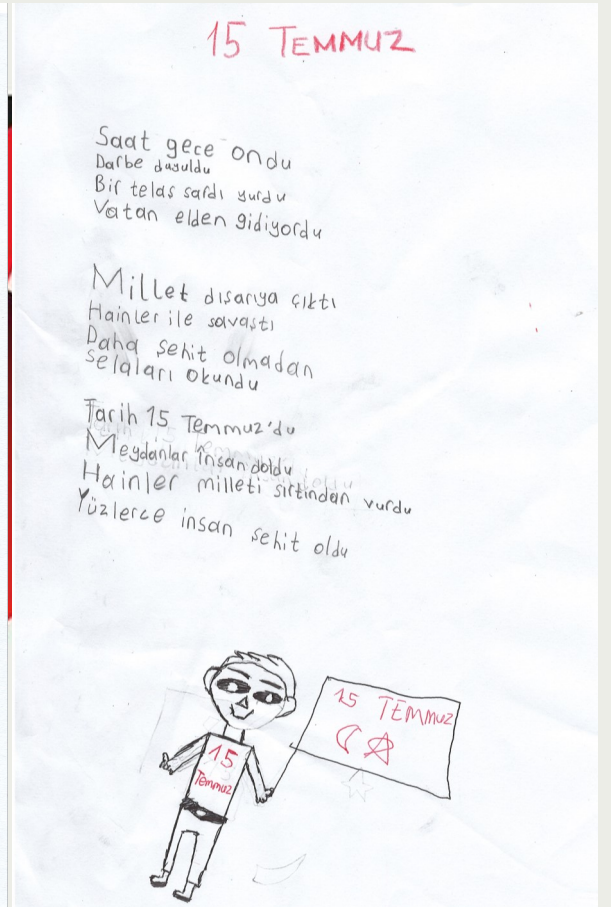 15 TEMMUZ
Saat gece ondu
Darbe duyuldu
Bir telaş sardı yurdu
Vatan elden gidiyordu
Millet dışarıya çıktı
Hainler ile savaştı
Daha şehit olmadan
Selaları okundu
Tarih 15 Temmuz'du
Meydanlar insan doldu
Hainler milleti sırtından vurdu
Yüzlerce insan şehit oldu
15 TEMMUZ
15
Temmuz